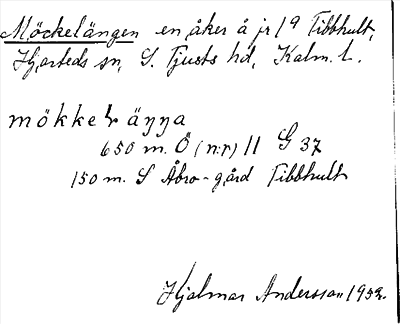 Möckelängen en åker å jr 1⁹ Tibbhult,
Hjorteds sn, S. Tjusts hd, Kalm. l.
mökkelˈäŋŋa
650 m. Ö (n:r) 11 G 37
150 m. S Åbro-gård Tibbhult
Hjalmar Andersson 1952.